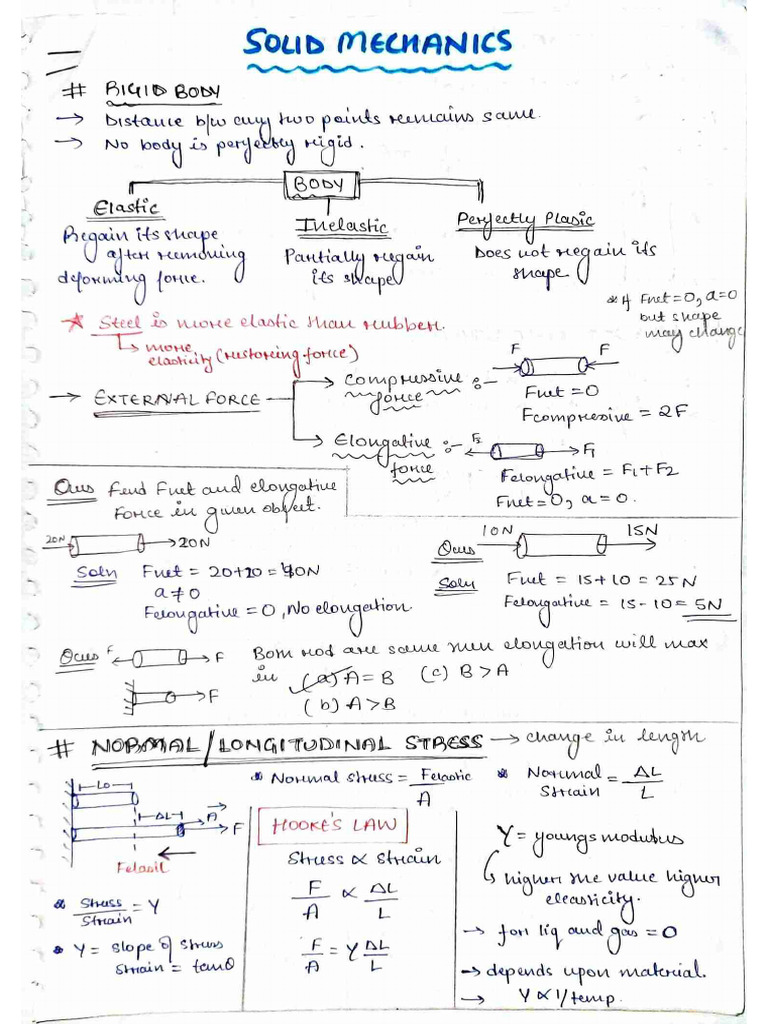 SOLID MECHANICS
# RIGID BODY
→ Distance b/w any two points remains same.
→ No body is perfectly rigid.
BODY
Elastic
Regain its shape
after removing
deforming force.
Inelastic
Partially regain
its shape
Perfectly Plasic
Does not regain its
shape
* If Fnet=0, a=0
but shape
may change
★ Steel is more elastic than rubber.
↳ more
elasticity (restoring force)
→ EXTERNAL FORCE
→ Compressive force :-
F F
Fnet = 0
Fcompressive = 2F
→ Elongative force :-
F2 F1
Felongative = F1 + F2
Fnet = 0, a = 0.
Ques Find Fnet and elongative
Force in given object.
20N → 20N
Soln Fnet = 20+20 = 40N
a ≠ 0
Felongative = 0, No elongation.
Ques 10N 15N
Soln Fnet = 15 + 10 = 25N
Felongative = 15 - 10 = 5N
Ques F F
F
Both rod are same then elongation will max
in (a) A = B (c) B > A
(b) A > B
# NORMAL/LONGITUDINAL STRESS → change in length
Lo
ΔL A
F
* Normal stress = Felastic / A
* Normal Strain = ΔL / L
HOOKE'S LAW
Stress ∝ Strain
F/A ∝ ΔL/L
F/A = Y ΔL/L
* Stress / Strain = Y
* Y = slope of stress
strain = tanθ
Y = youngs modulus
↳ higher the value higher
eleasticity.
→ for liq and gas = 0
→ depends upon material.
→ Y ∝ 1/temp.